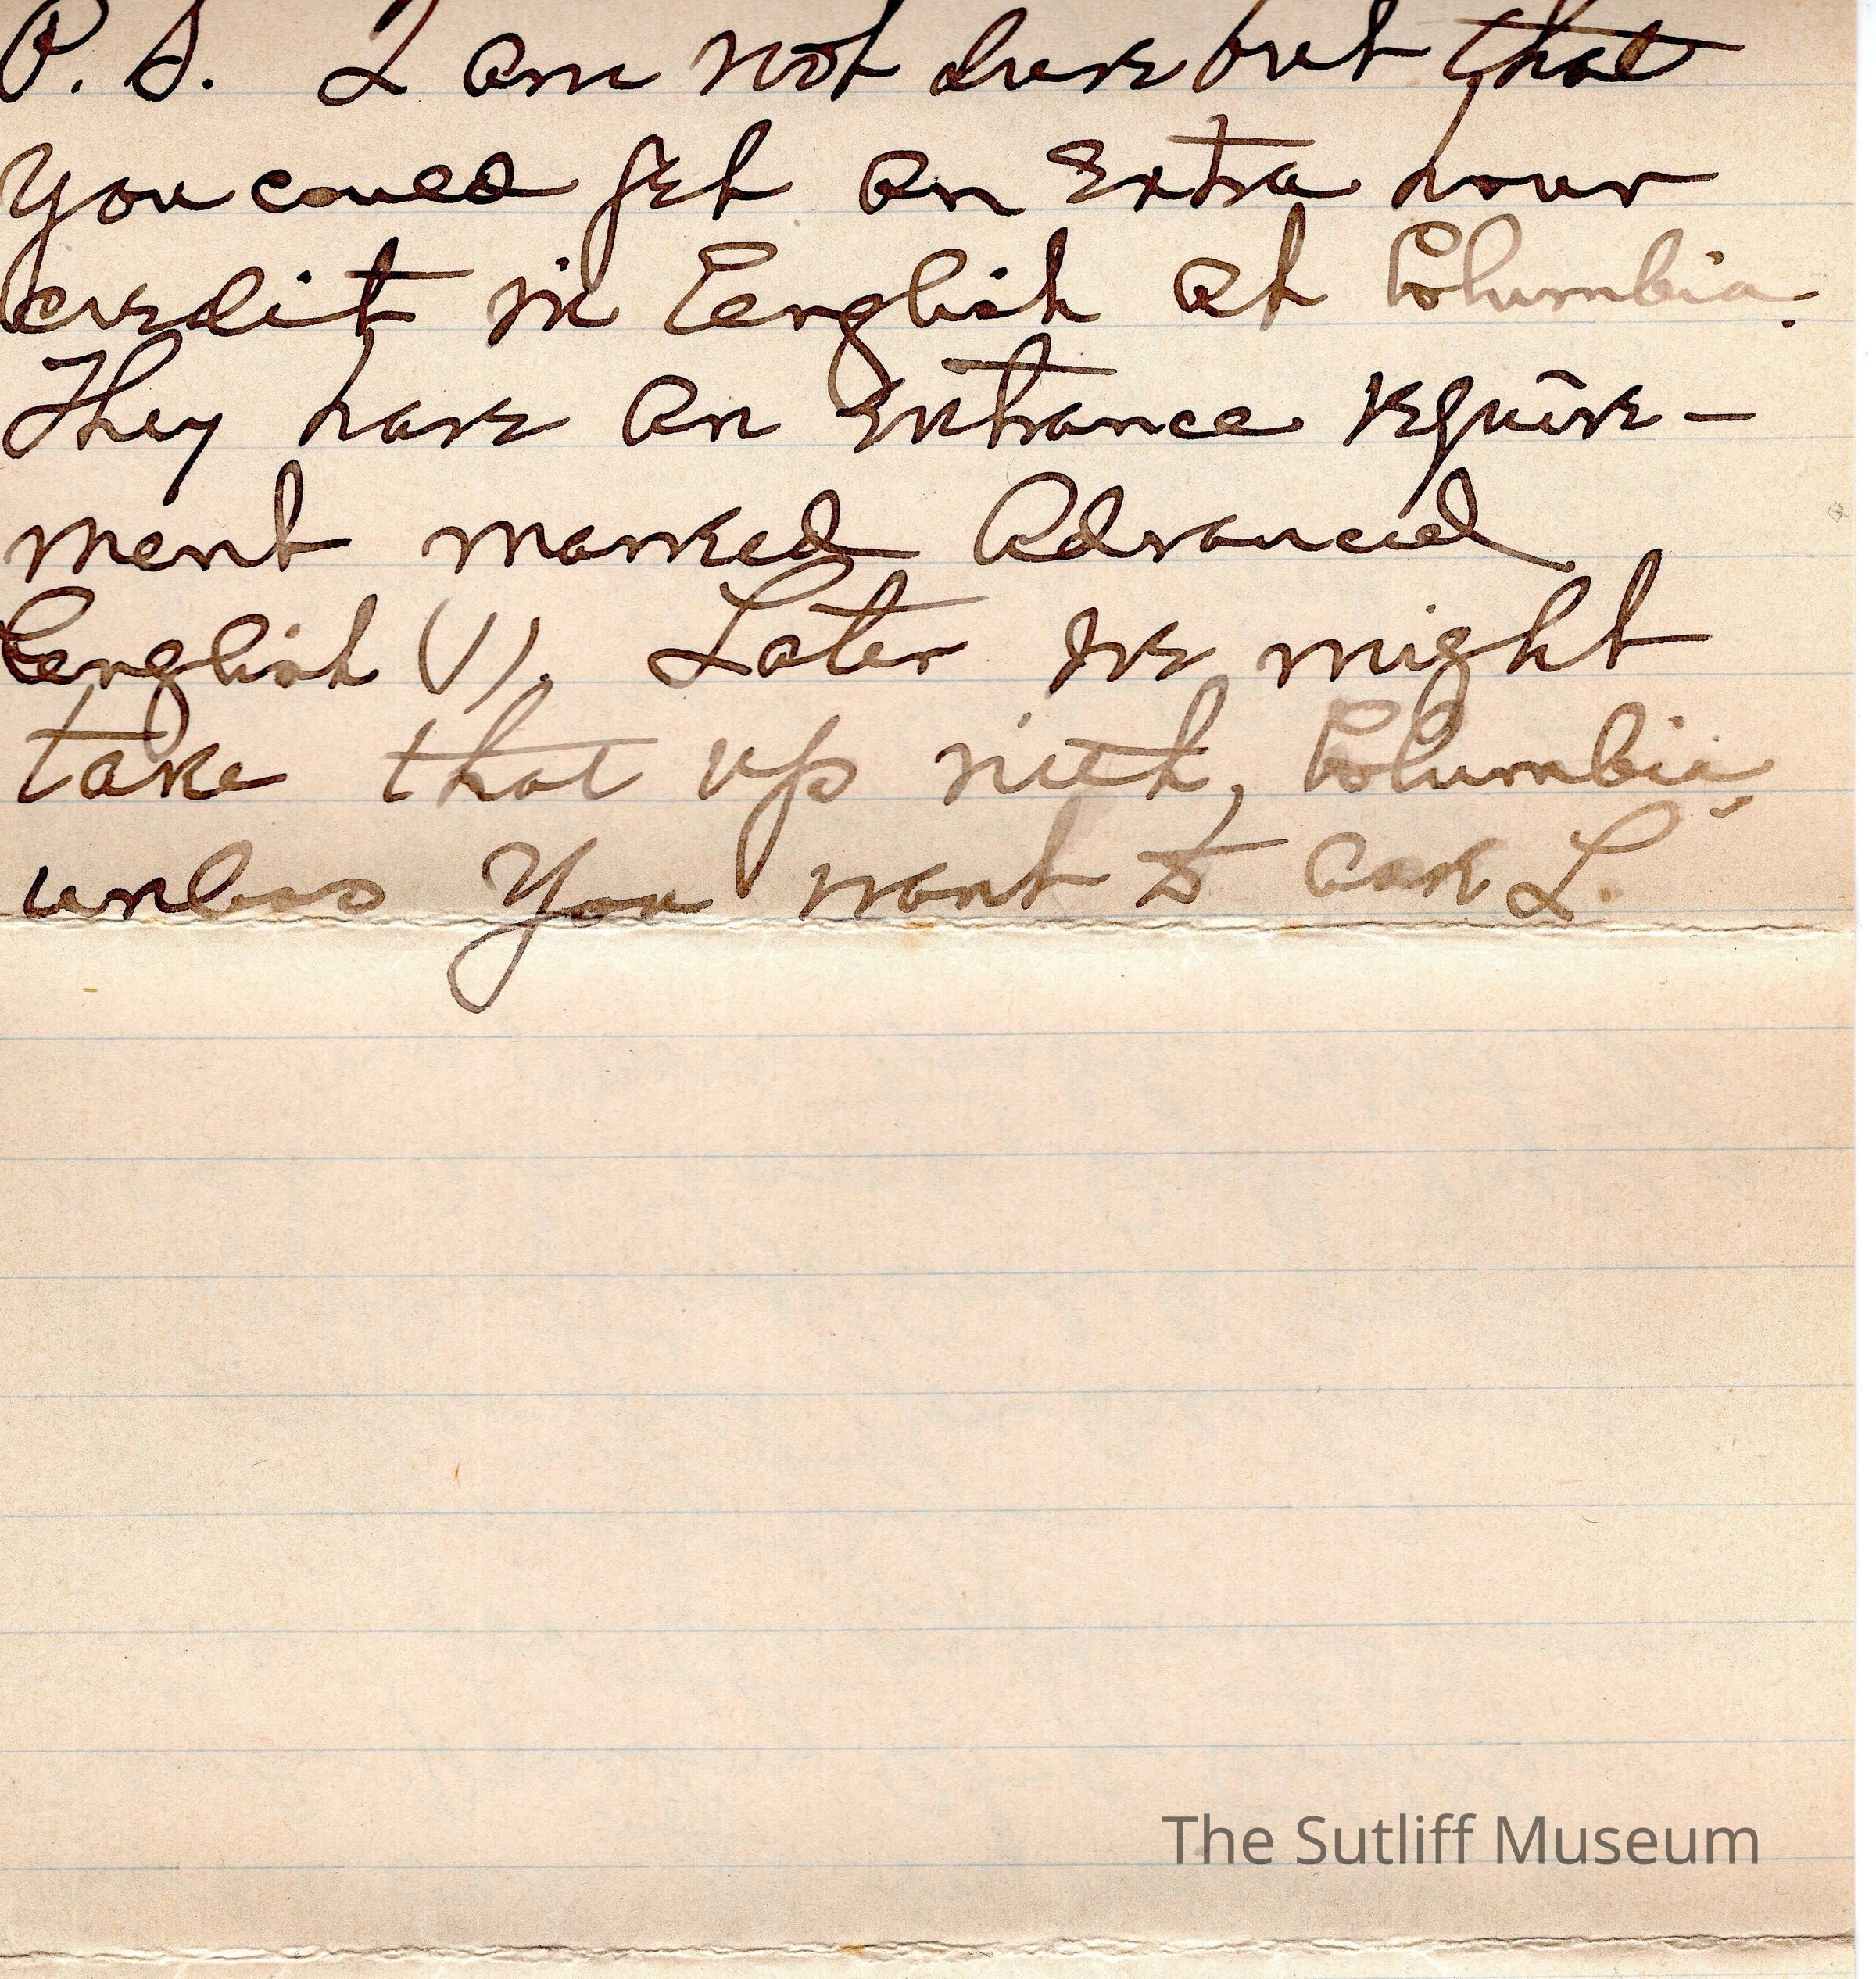 P. S. I am not sure but that
you could get an extra hour
credit in English at Columbia.
They have an entrance require-
ment marked Advanced
English (1). Later we might
take that up with, Columbia,
unless you want to ask L.
The Sutliff Museum